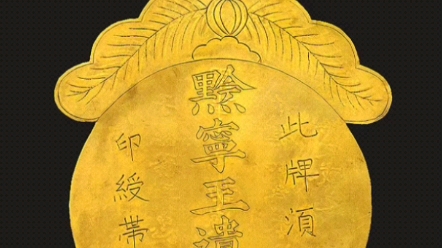 此牌須
黔寧王遺
印綬帶